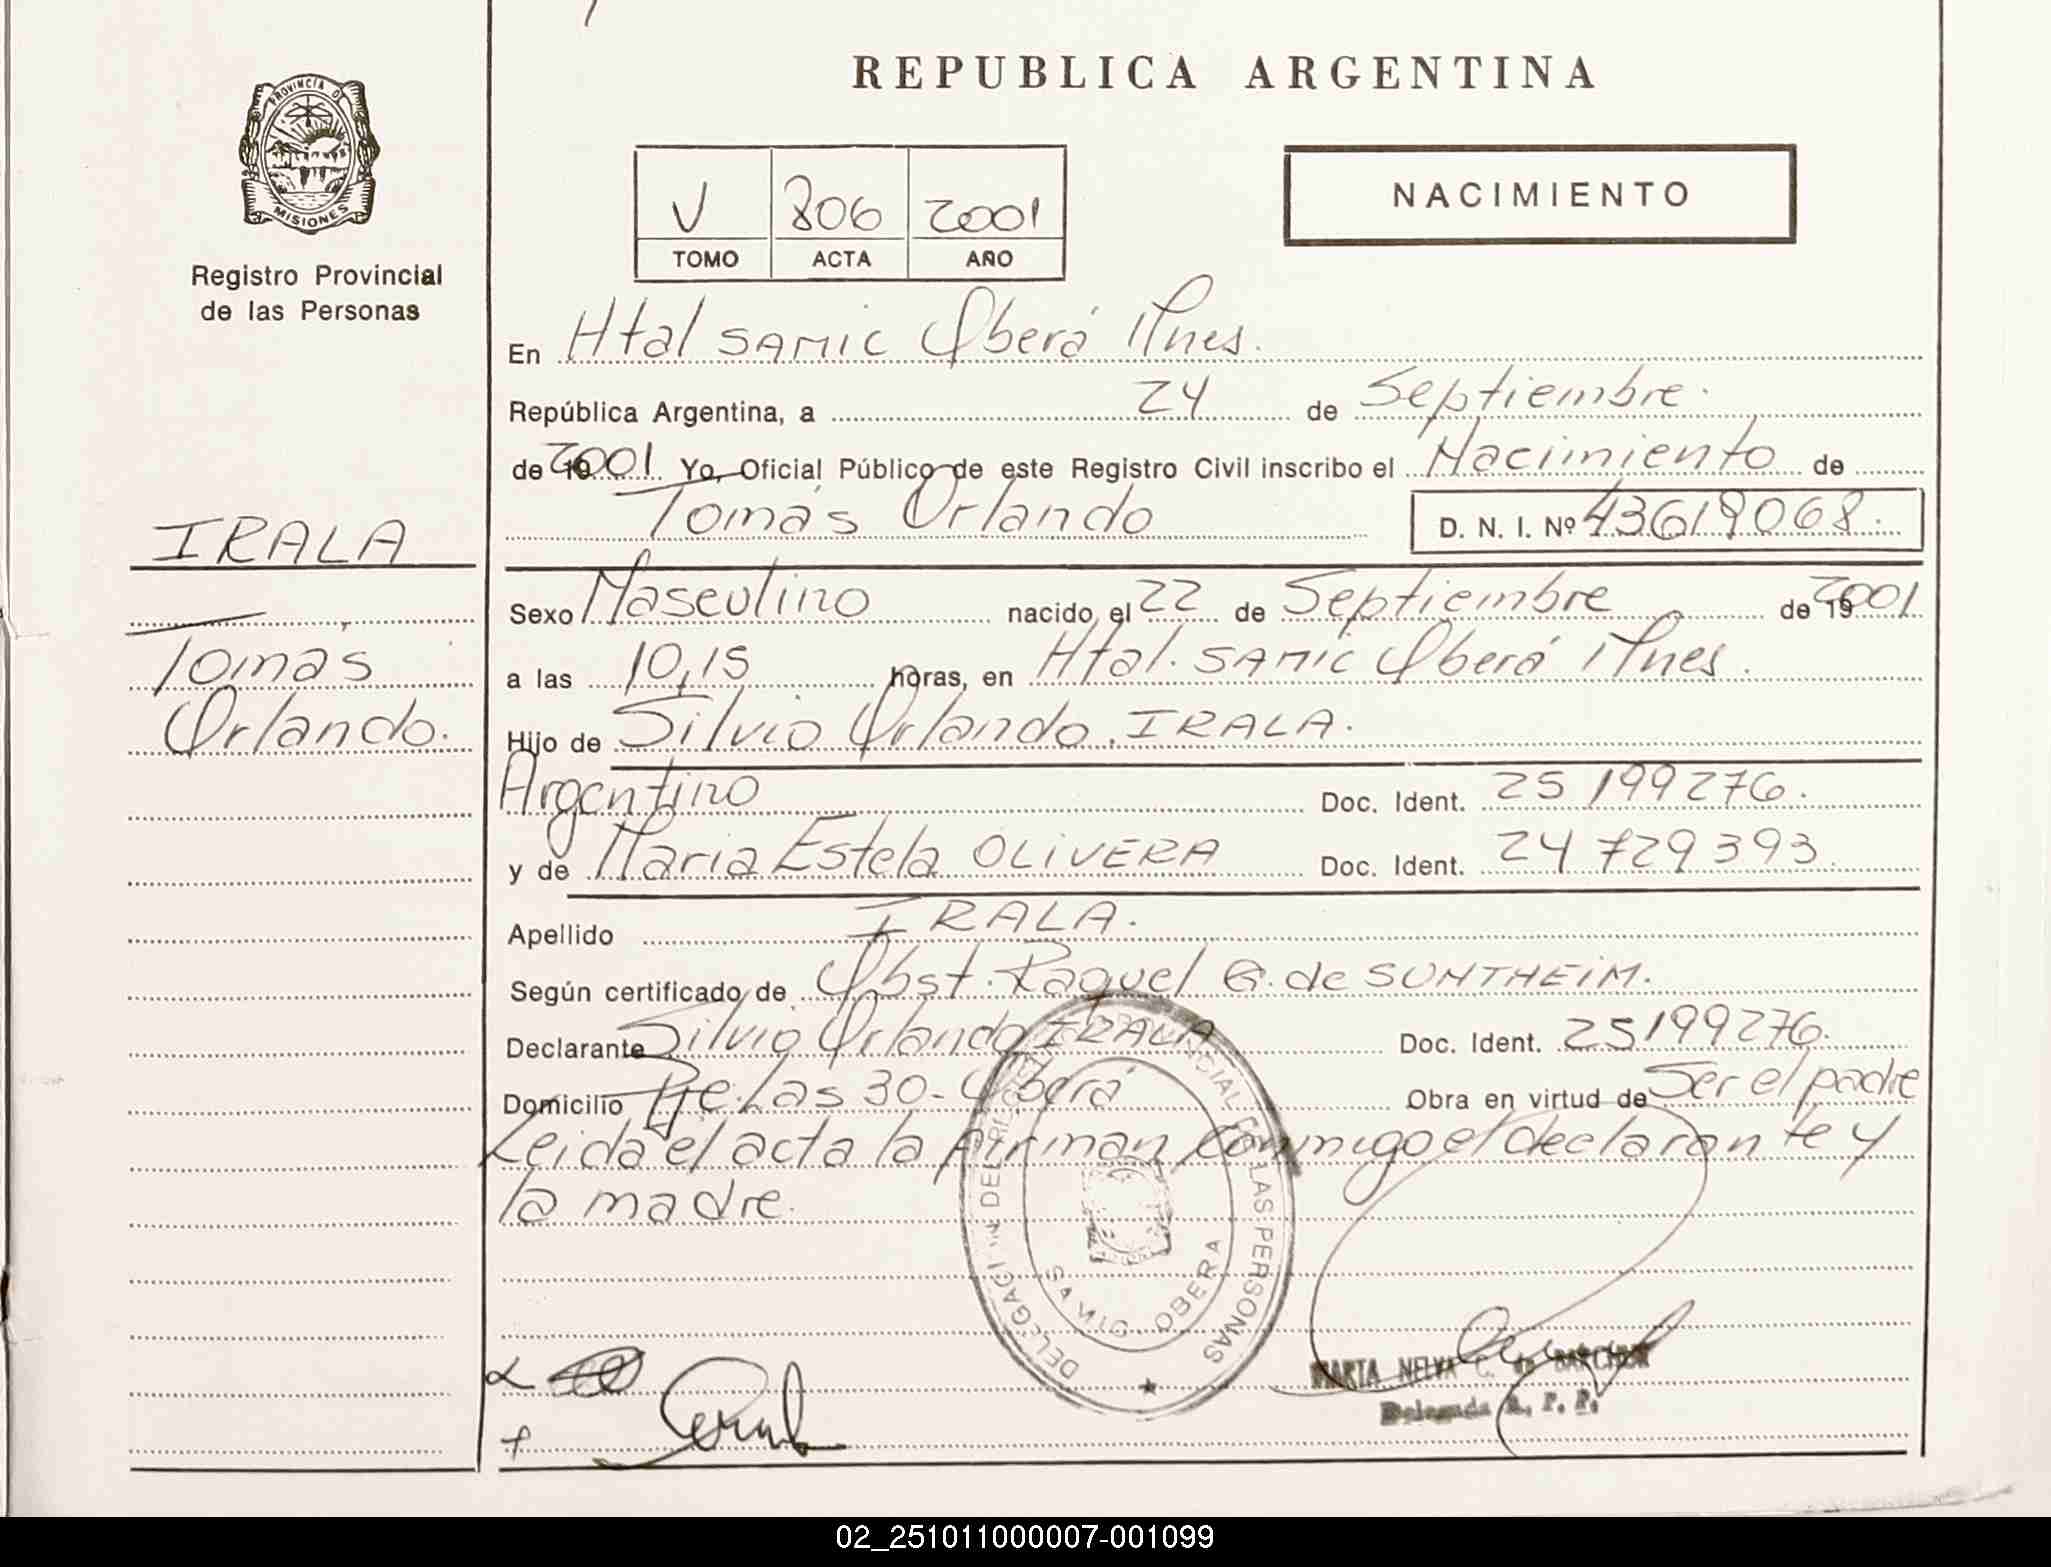 REPUBLICA ARGENTINA
PROVINCIA DE MISIONES
Registro Provincial
de las Personas
V 806 2001
TOMO ACTA AÑO
NACIMIENTO
En Htal SAMIC Oberá Mnes.
República Argentina, a 24 de Septiembre.
de 2001 Yo, Oficial Público de este Registro Civil inscribo el Nacimiento de
Tomás Orlando D. N. I. Nº 43619068.
IRALA
Tomás
Orlando.
Sexo Masculino nacido el 22 de Septiembre de 19 2001
a las 10,15 horas, en Htal. SAMIC Oberá Mnes.
Hijo de Silvio Orlando IRALA.
Argentino Doc. Ident. 25 199276.
y de Maria Estela OLIVERA Doc. Ident. 24 729393.
Apellido IRALA.
Según certificado de Obst. Raquel G. de SUNTHEIM.
Declarante Silvio Orlando IRALA Doc. Ident. 25199276.
Domicilio Pje. Las 30- Oberá Obra en virtud de Ser el padre
Leida el acta la firman conmigo el declarante y
la madre.
DELEGACION DEL REGISTRO PROVINCIAL DE LAS PERSONAS
SAMIC - OBERA
MARTA NELVA C. de
Delegada R. P. P.
02_251011000007-001099